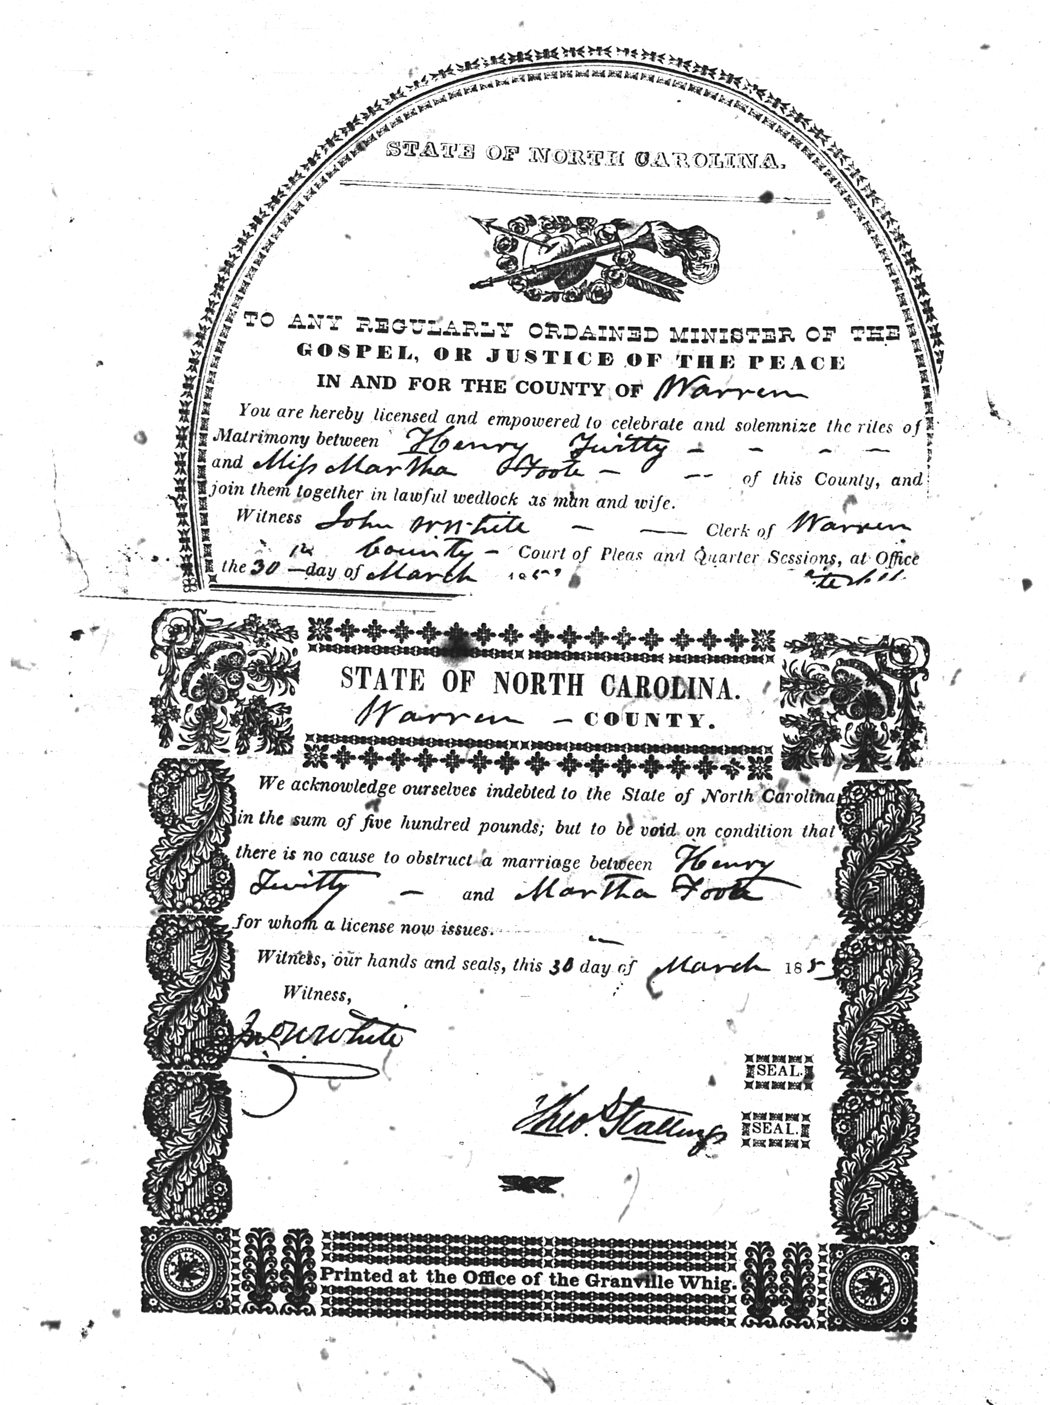 STATE OF NORTH CAROLINA.
TO ANY REGULARLY ORDAINED MINISTER OF THE
GOSPEL, OR JUSTICE OF THE PEACE
IN AND FOR THE COUNTY OF Warren
You are hereby licensed and empowered to celebrate and solemnize the rites of
Matrimony between Henry Twitty - - - -
and Miss Martha Foote - -- of this County, and
join them together in lawful wedlock as man and wife.
Witness John W White - — Clerk of Warren
County - Court of Pleas and Quarter Sessions, at Office
the 30 —day of March
STATE OF NORTH CAROLINA.
Warren - COUNTY.
We acknowledge ourselves indebted to the State of North Carolina
in the sum of five hundred pounds; but to be void on condition that
there is no cause to obstruct a marriage between Henry
Twitty - and Martha Foote
for whom a license now issues.
Witness, our hands and seals, this 30 day of March 185
Witness,
Jno W White
SEAL.
Theo. Stallings SEAL.
Printed at the Office of the Granville Whig.